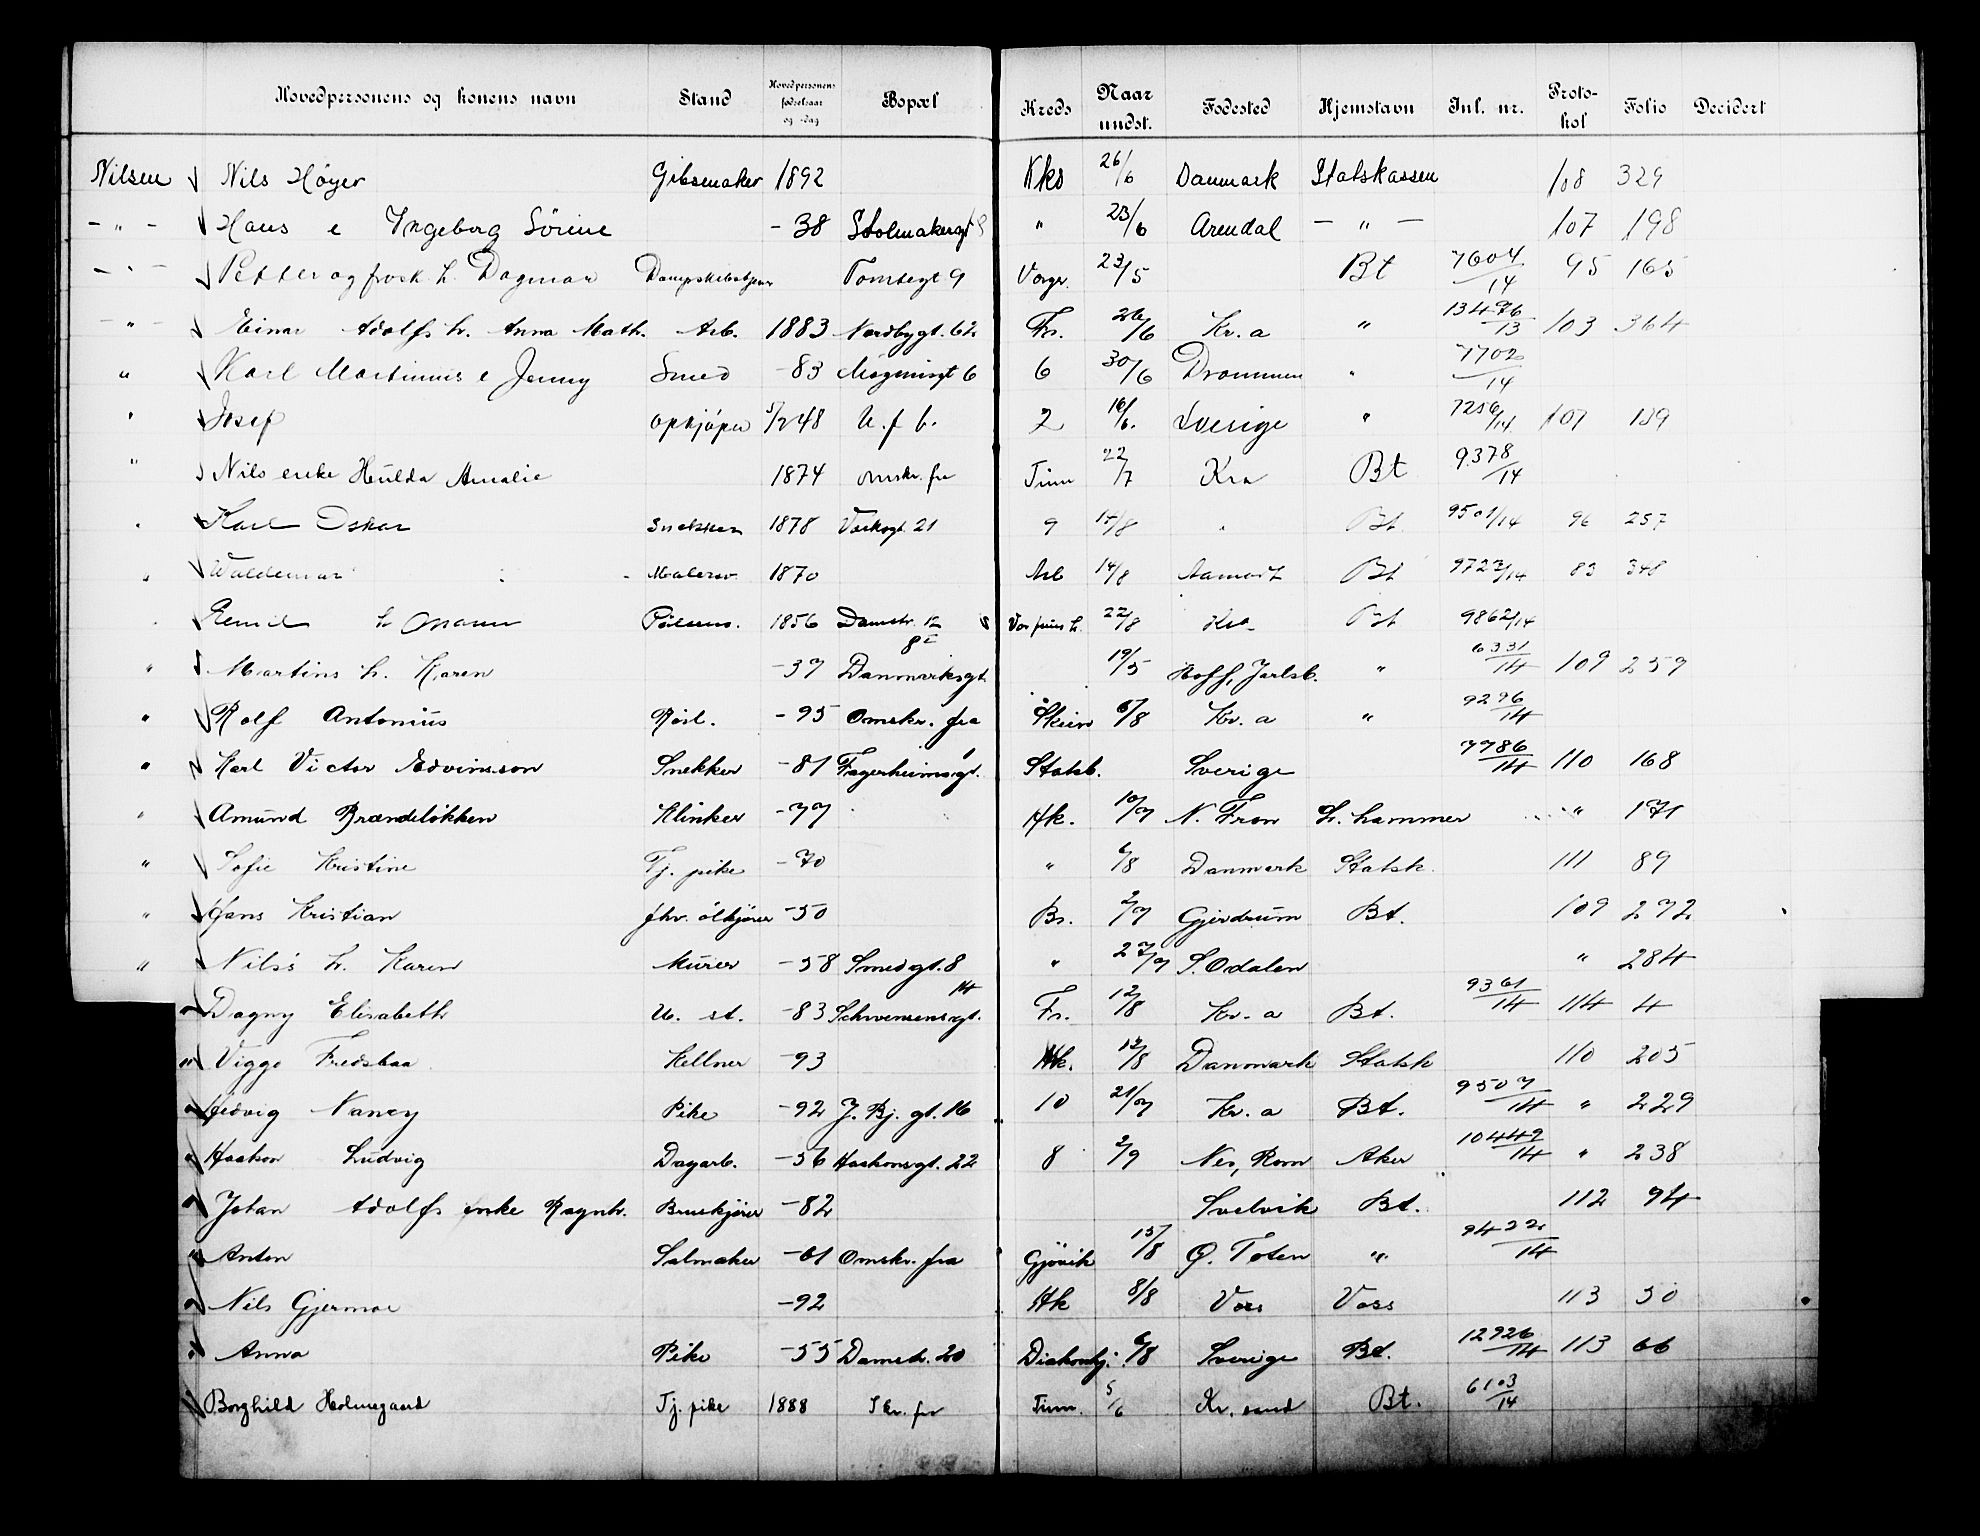 Hovedpersonens og konens navn Stand Hovedpersonens fødselsaar og -dag Bopæl Kreds Naar undst. Fødested Hjemstavn Inl. nr. Protokol Folio Decidert
Nilsen Nils Høyer Gibsmaker 1892 Kks 26/6 Danmark Statskassen 108 329
- " - Hans e Ingeborg Sörine - 38 Stolmakergt " 23/6 Arendal - " - 107 198
- " - Petter og frask. h. Dagmar Tomtegt 9 Vergr. 23/5 Bt 7604/14 95 165
- " - Einar Adolfs h. Anna Math. Arb. 1883 Nordbygt. 62 Fr. 26/6 Kr.a " 13476/13 103 364
" Karl Martinius e Jenny Smed - 83 6 6 30/6 Drammen " 7702/14
" Josef opkjøper 5/2 48 U. f b. 2 16/6. Sverige " 7256/14 107 189
" Nils enke Hulda Amalie 1874 omskr. fra Tinn 22/7 Kra Bt 9378/14
" Karl Oskar Snekker 1878 Vaskegt. 21 9 15/8 " Bt 9501/14 96 257
" Waldemar Malersv. 1870 Arb 14/8 Aamodt Bt 9723/14 83 348
" Emil h Pölsem. 1856 Damstr. 12 22/8 Kra Bt 9862/14
" Martins h. Karen - 37 Danmarksgt. 8 19/5 Hoff, Jarlsb. " 6331/14 109 259
" Rolf Antonius - 95 Omskr. fra Skien 6/8 Kr.a " 9276/14
" Karl Victor Edvinsson Snekker - 81 Fagerheimsgt. 1 Statsb. Sverige 7786/14 110 168
" Amund Brændeløkken Klinker - 77 Hk. 10/7 N. Fron L. hammer " 171
" Sofie Kristine Tj. pike - 70 " 6/8 Danmark Statsk. 111 89
" Hans Kristian fhv. ölkjører - 50 Br. 2/7 Gjerdrum Bt. 109 292
" Nils's h. Karen Murer - 58 Smedgt. 8 " 27/7 S. Odalen " 284
" Dagny Elisabeth U. st. - 83 Schwensensgt. 14 Fr. 12/8 Kr.a Bt. 9361/14 114 4
" Viggo Fredsbaa Kellner - 93 Hk. 12/8 Danmark Statsk 110 205
" Hedvig Nancy Pike - 92 J. Bj. gt. 16 10 21/7 Kr.a Bt. 9507/14 " 229
" Haakon Ludvig Dagarb. - 56 Haakonsgt. 22 8 2/9 Nes, Rom Aker 10449/14 " 238
" Johan Adolfs enke Ragnh. Bruskjører - 82 Svelvik Bt. 112 94
" Anton Salmaker - 61 Omskr. fra Gjøvik 15/8 Ö. Toten " 9422/14
" Nils Gjermoe - 92 Hk 8/8 Voss Voss 113 50
" Anna Pike - 55 Damstr. 20 Diakonhj. 6/8 Sverige Bt. 12926/14 113 66
" Borghild Holmegaard Tj. pike 1888 Skr. fra Tinn. 5/6 Kr. sand Bt. 6103/14